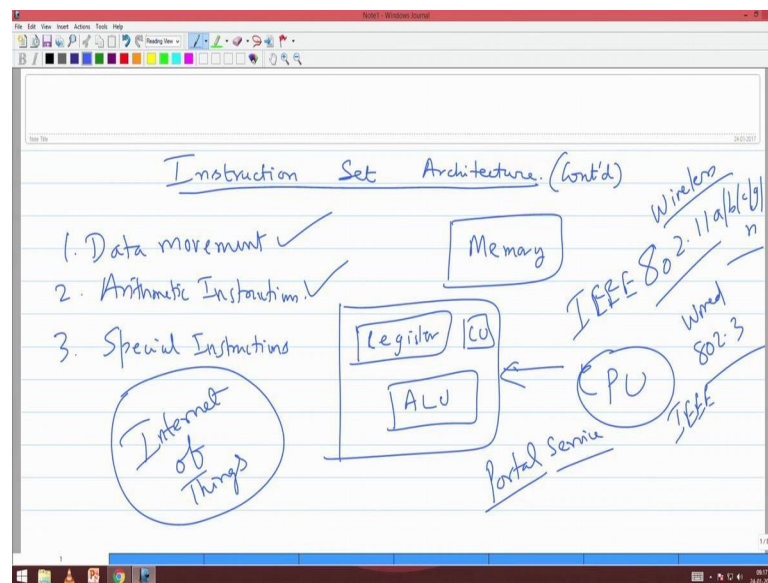 Note1 - Windows Journal
File Edit View Insert Actions Tools Help
Reading View
B I
Note Title
24-01-2017
Instruction Set Architecture. (Cont'd)
1. Data movement
2. Arithmetic Instruction.
3. Special Instructions
Memory
Register
CU
ALU
CPU
Internet
of
Things
Portal Service
Wireless
IEEE 802.11a/b/c/g/
n
Wired
802.3
IEEE
1
1/1
09:17
24-01-2017